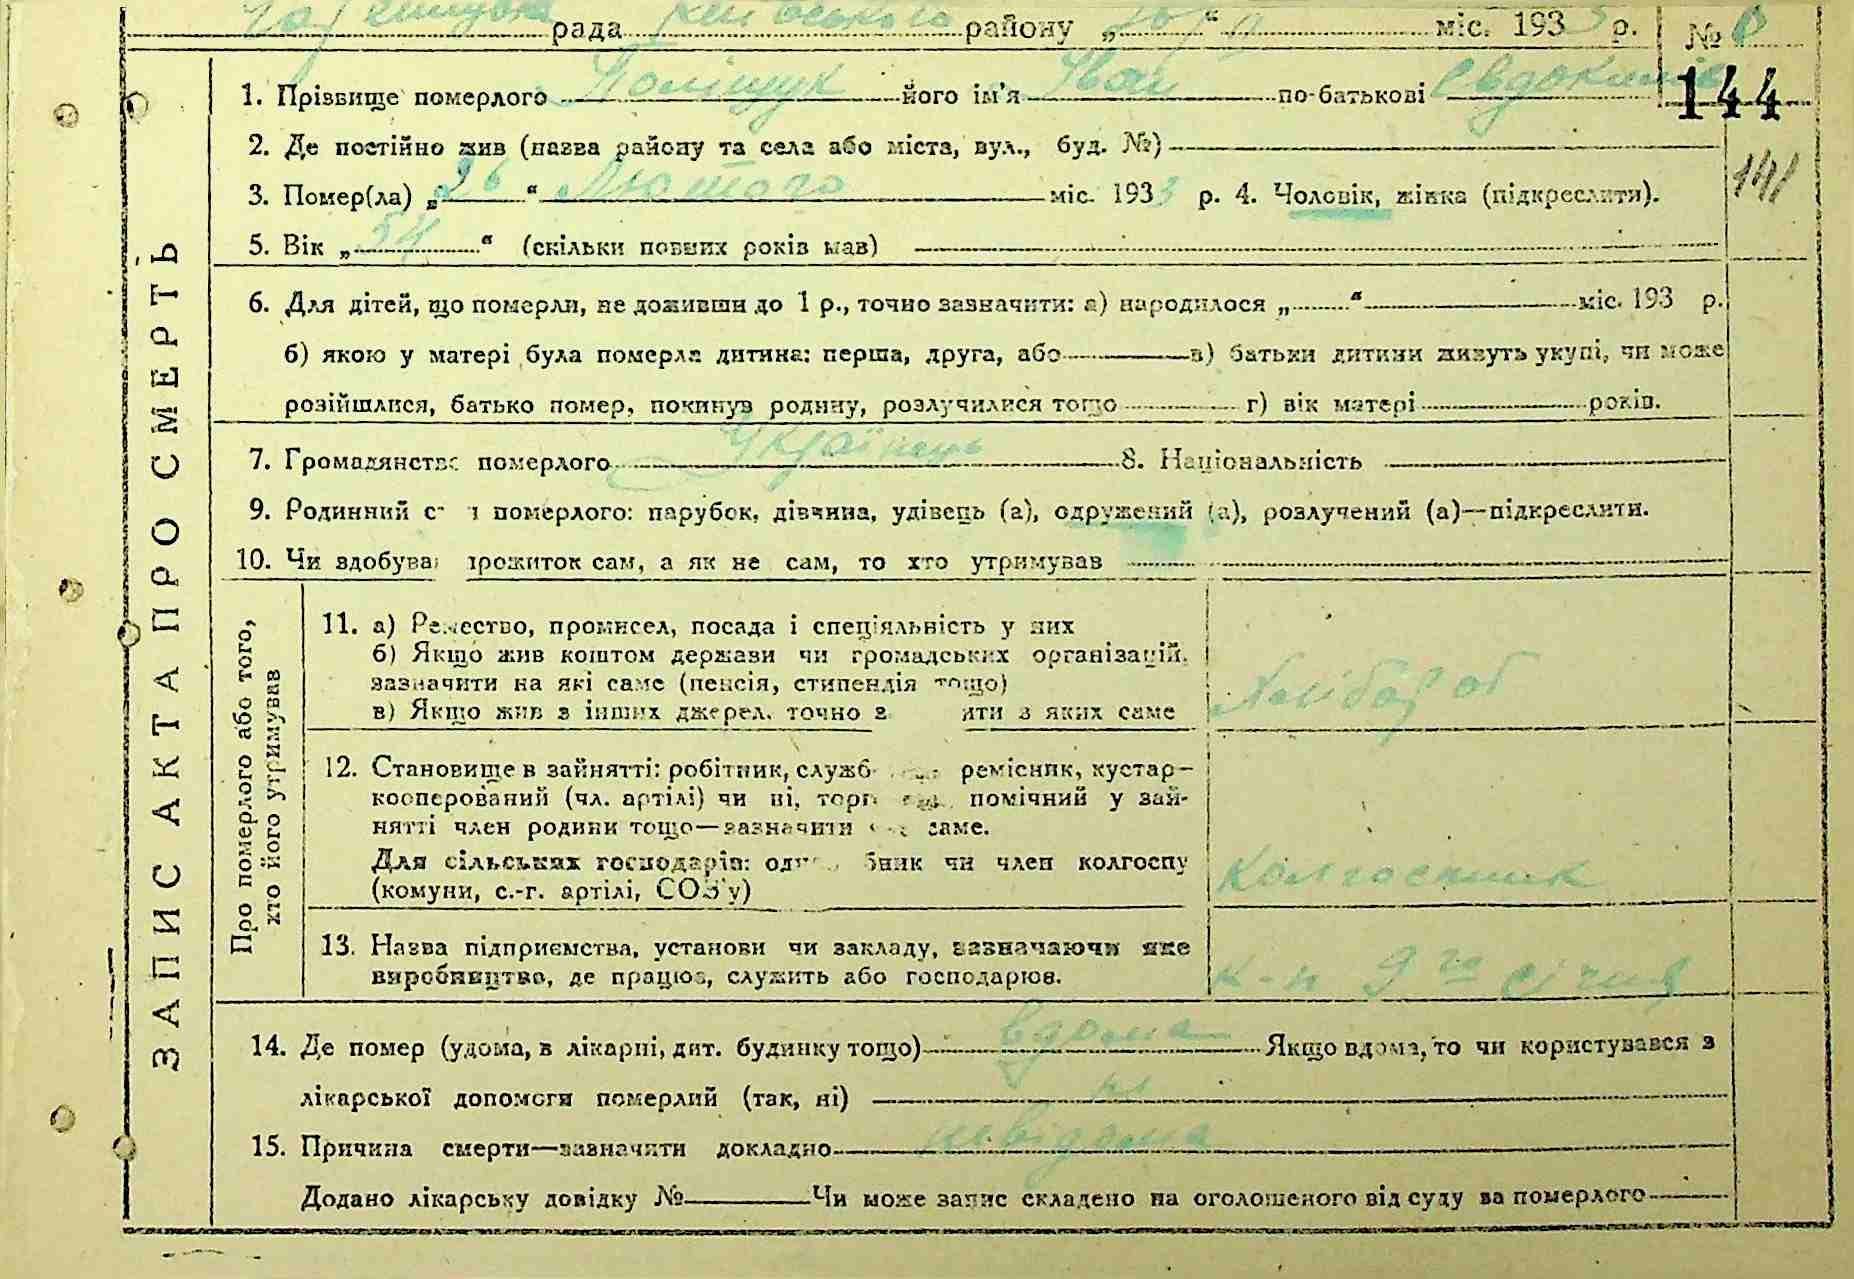 рада района району „ “ міс. 1933 р. №
1. Прізвище померлого Поліщук його ім'я Іван по-батькові Євдокимів 144
2. Де постійно жив (назва району та села або міста, вул., буд. №)
141
3. Помер(ла) „26“ Лютого міс. 1933 р. 4. Чоловік, жінка (підкреслити).
5. Вік „54“ (скільки повних років мав)
6. Для дітей, що померли, не доживши до 1 р., точно зазначити: а) народилося „ “ міс. 193 р.
б) якою у матері була померла дитина: перша, друга, або в) батьки дитини живуть укупі, чи може
розійшлися, батько помер, покинув родину, розлучилися тощо г) вік матері років.
7. Громадянство померлого Українець 8. Національність
9. Родинний с н померлого: парубок, дівчина, удівець (а), одружений (а), розлучений (а)—підкреслити.
10. Чи здобува прожиток сам, а як не сам, то хто утримував
ЗАПИС АКТА ПРО СМЕРТЬ
Про померлого або того,
хто його утримував
11. а) Ремество, промисел, посада і спеціяльність у них
б) Якщо жив коштом держави чи громадських організацій,
зазначити на які саме (пенсія, стипендія тощо)
в) Якщо жив з інших джерел, точно з ити з яких саме
Хлібороб
12. Становище в зайнятті: робітник, служб ремісник, кустар–
кооперований (чл. артілі) чи ні, торг помічний у зай-
нятті член родини тощо—зазначити саме.
Для сільських господарів: од бник чи член колгоспу
(комуни, с.-г. артілі, СОЗ'у)
колгоспник
13. Назва підприємства, установи чи закладу, зазначаючи яке
виробництво, де працює, служить або господарює.
к-п 9го січня
14. Де помер (удома, в лікарні, дит. будинку тощо) вдома Якщо вдома, то чи користувався з
лікарської допомоги померлий (так, ні) ні
15. Причина смерти—зазначити докладно невідома
Додано лікарську довідку № Чи може запис складено на оголошеного від суду за померлого